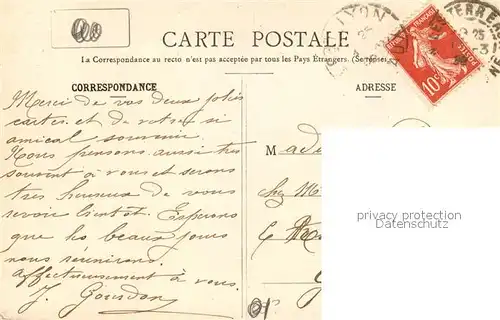 CARTE POSTALE
La Correspondance au recto n'est pas acceptée par tous les Pays Étrangers.
CORRESPONDANCE
ADRESSE
10c
Merci de vos deux jolies
cartes et de votre si
amical souvenir.
Nous pensons aussi très
souvent à vous et serons
très heureux de vous
revoir bientôt. Espérons
que les beaux jours
nous réunirons.
Affectueusement à vous.
J. Gourdon
M
chez
privacy protection
Datenschutz